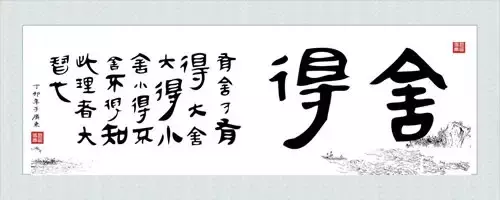 舍得
有舍才有
得大舍
大得小
舍小得不
舍不得知
此理者大
智也
丁卯年于廣东